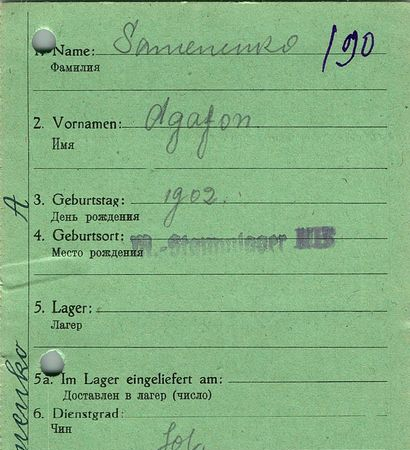 1. Name: Samenenko
Фамилия
190
2. Vornamen: Agafon
Имя
3. Geburtstag: 1902.
День рождения
4. Geburtsort:
Место рождения
M.-Stammlager
5. Lager:
Лагерь
5a. Im Lager eingeliefert am:
Доставлен в лагер (число)
6. Dienstgrad:
Чин
A